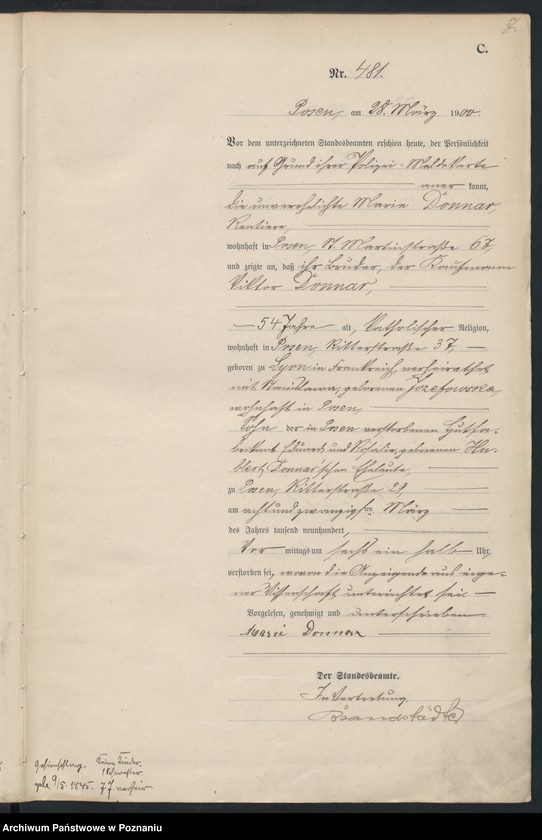 7.
C.
Nr. 481.
Posen, am 28. März 1900.
Vor dem unterzeichneten Standesbeamten erschien heute, der Persönlichkeit
nach auf Grund ihrer Polizei-Meldekarte
aner kannt,
die unverehelichte Marie Donnar,
Rentiere,
wohnhaft in Posen, St. Martinstraße 67,
und zeigte an, daß ihr Bruder, der Kaufmann
Viktor Donnar,
54 Jahre alt, katholischer Religion,
wohnhaft in Posen, Ritterstraße 37,
geboren zu Lyon in Frankreich, verheirathet
mit Stanislawa, geborenen Jozefowska,
wohnhaft in Posen,
Sohn der in Posen verstorbenen Hutfa-
brikant Eduard und Rosalie, geborenen Hu-
blert, Donnar'schen Eheleute,
zu Posen, Ritterstraße 29,
am achtundzwanzigsten März
des Jahres tausend neunhundert,
Vor mittags um sechs ein halb Uhr,
verstorben sei, wovon die Anzeigende aus eige-
ner Wissenschaft unterrichtet sei.
Vorgelesen, genehmigt und unterschrieben
Marie Donnar
Der Standesbeamte.
In Vertretung.
Brandstädter
Gehirnschlag. Keine Kinder.
geb. 9/5. 1845. 7 J. verheir.
Archiwum Państwowe w Poznaniu